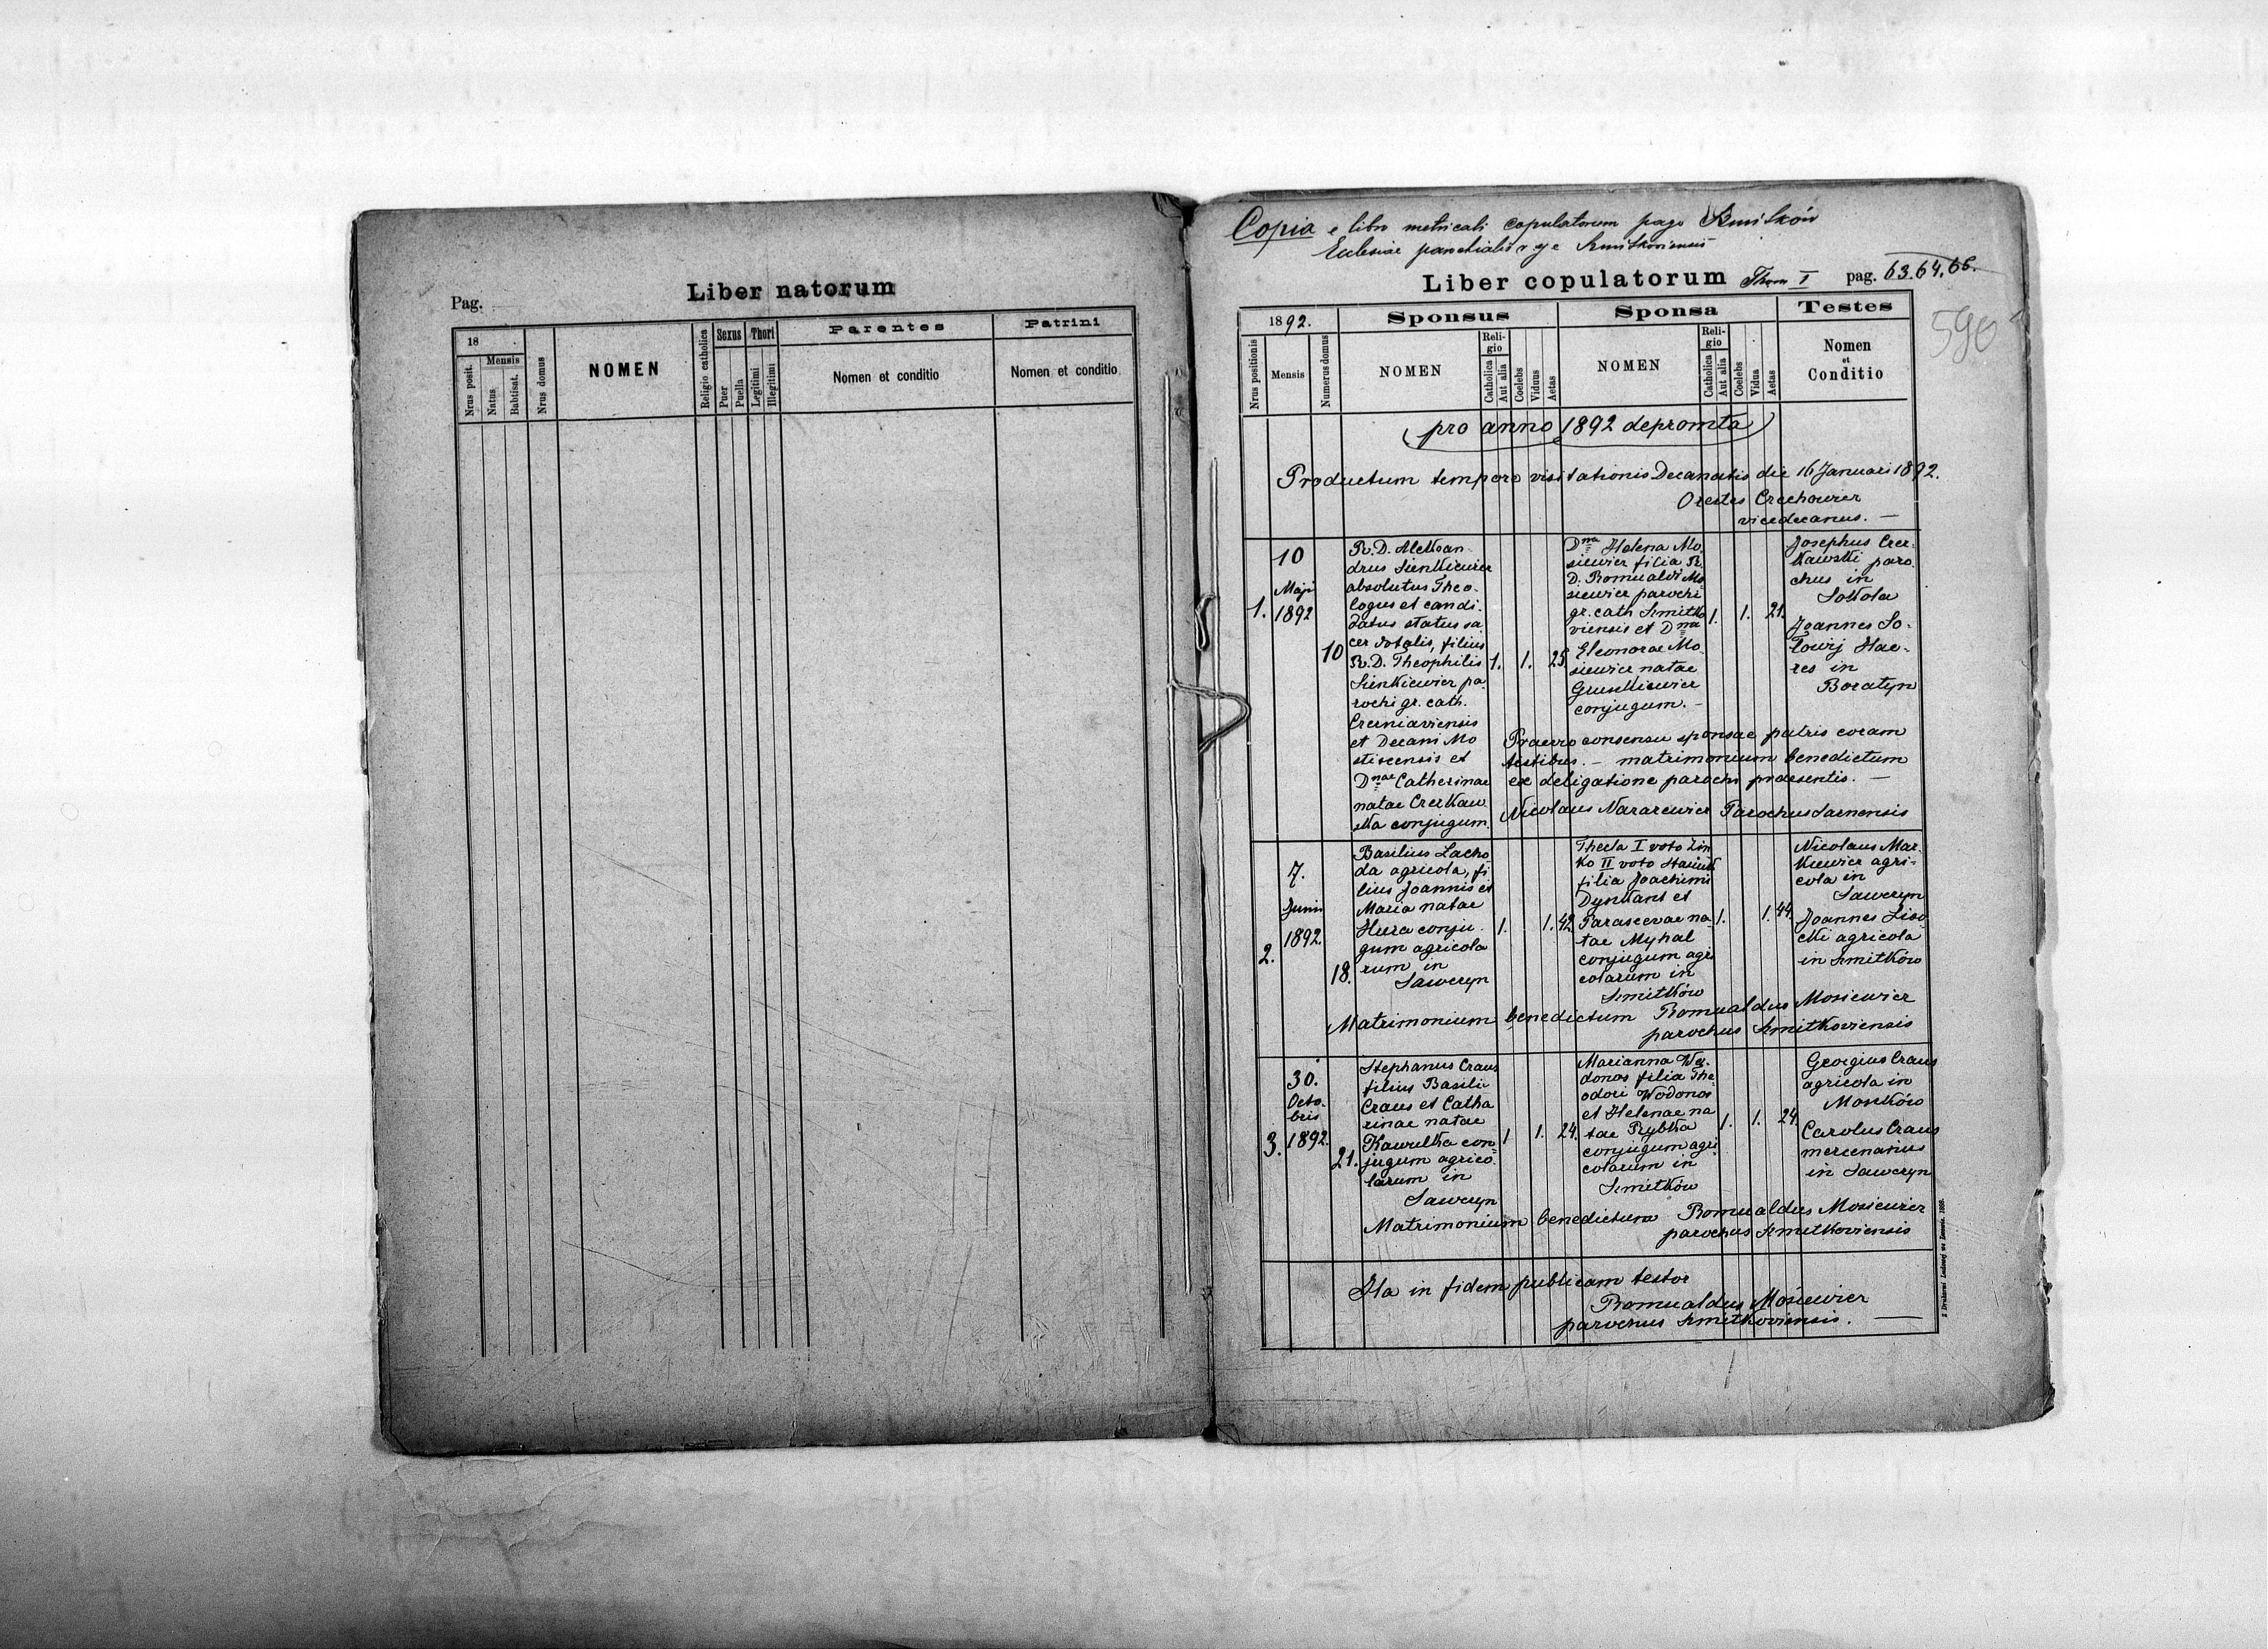 Liber natorum
Pag.
18
Nrus posit.
Mensis
Natus
Babtisat.
Nrus domus
NOMEN
Religio catholica
Sexus
Puer
Puella
Thori
Legitimi
Illegitimi
Parentes
Nomen et conditio
Patrini
Nomen et conditio
Copia e libro metricali copulatorum pago Szmitków
Eclesiae parochialis r. g. c. Szmitkoviensis
Liber copulatorum Thom I pag. 63. 64. 65.
590
1892.
Nrus positionis
Mensis
Numerus domus
Sponsus
NOMEN
Religio
Catholica
Aut alia
Coelebs
Viduus
Aetas
Sponsa
NOMEN
Religio
Catholica
Aut alia
Coelebs
Vidua
Aetas
Testes
Nomen
et
Conditio
(pro anno 1892 depromta)
Productum tempore visitationis Decanatis die 16 Januari 1892.
Orestes Czechowicz
vicedecanus. —
1.
10
Maji
1892
10
R. D. Aleksan-
drus Sienkiewicz
absolutus Theo-
logus et candi-
datus status sa
cerdotalis, filius
R. D. Theophilis
Sienkiewicz pa-
rochi gr. cath.
Czerniaviensis
et Decani Mo
sticensis et
Dnae Catherinae
natae Czerkaw
ska conjugum.
1. 1. 25
Dna Helena Mo-
siewicz filia R.
D. Romualdi Mo
siewicz parochi
gr. cath. Szmitko
viensis et Dna
Eleonorae Mo-
siewicz natae
Gruszkiewicz
conjugum. -
1. 1. 21.
Josephus Czer-
kawski paro
chus in
Sokola
Joannes So-
łowij Hae-
res in
Boratyn
Praevio consensu sponsae patris coram
testibus. - matrimonium benedictum
ex deligatione parochi praesentis. —
Nicolaus Nazarewicz Parochus Sarnensis
2.
7.
Junii
1892.
18.
Basilius Lacho
da agricola, fi
lius Joannis et
Maria natae
Huza conju-
gum agricola
rum in
Sawczyn
1. 1. 42
Thecla I voto Zin
ko II voto
filia Joachimi
et
Parascevae na-
tae Myhal
conjugum agri
colarum in
Szmitków
1. 1. 44
Nicolaus Mar-
kiewicz agri-
cola in
Sawczyn
Joannes Liso
cki agricola
in Szmitków
Matrimonium benedictum Romualdus Mosiewicz
parochus Szmitkoviensis
3.
30.
Octo-
bris
1892.
21.
Stephanus Craus
filius Basilii
Craus et Catha
rinae natae
Kawulka con
jugum agrico
larum in
Sawczyn
1 1. 24.
Marianna Wo-
donos filia The-
odori Wodonos
et Helenae na
tae Rybka
conjugum agri
colarum in
Szmitków
1. 1. 24.
Georgius Craus
agricola in
Moszków
Carolus Craus
mercenarius
in Sawczyn
Matrimonium benedictum Romualdus Mosiewicz
parochus Szmitkoviensis
Ita in fidem publicam testor
Romualdus Mosiewicz
parochus Szmitkoviensis. —
Z Drukarni Ludowej we Lwowie.